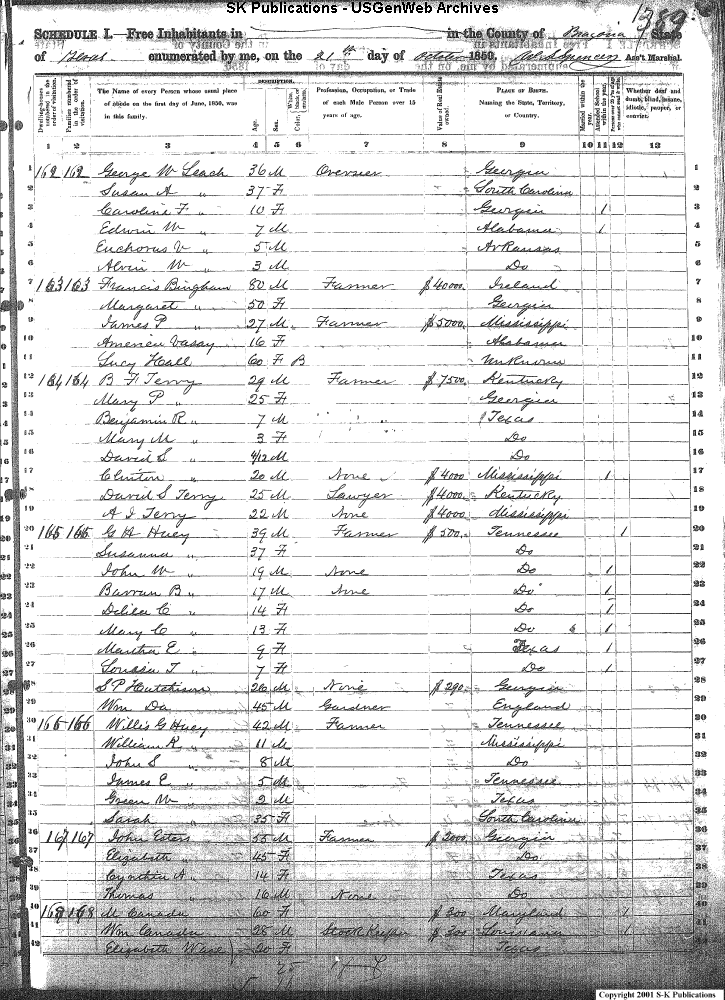 SK Publications - USGenWeb Archives
1389
SCHEDULE I.—Free Inhabitants in in the County of Brazoria State
of Texas enumerated by me, on the 21th day of October 1850. Ass't Marshal.
DESCRIPTION.
Dwelling-houses numbered in the order of visitation. Families numbered in the order of visitation. The Name of every Person whose usual place of abode on the first day of June, 1850, was in this family. Age. Sex. Color. Profession, Occupation, or Trade of each Male Person over 15 years of age. Value of Real Estate owned. PLACE OF BIRTH. Naming the State, Territory, or Country. Married within the year. Attended School within the year. Whether deaf and dumb, blind, insane, idiotic, pauper, or convict.
1 2 3 4 5 6 7 8 9 10 11 12 13
1 162 162 George W Leach 36 M Overseer Georgia 1
2 Susan A " 37 F South Carolina 2
3 Caroline F " 10 F Georgia 1 3
4 Edwin W " 7 M Alabama 1 4
5 V " 5 M Arkansas 5
6 Alvin W " 3 M Do 6
7 163 163 Francis Bingham 80 M Farmer $40000 Ireland 7
8 Margaret " 50 F Georgia 8
9 James P " 27 M Farmer $5000 Mississippi 9
10 American Vasay 16 F Alabama 10
11 Lucy Hall 60 F B Unknown 11
12 164 164 B F Terry 29 M Farmer $7500 Kentucky 12
13 Mary P " 25 F Georgia 13
14 Benjamin R " 7 M Texas 14
15 Mary M " 3 F Do 15
16 David S " 4/12 M Do 16
17 Clinton " 20 M None $4000 Mississippi 1 17
18 David S Terry 25 M Lawyer $4000 Kentucky 18
19 A J Terry 22 M None $4000 Mississippi 19
20 165 165 G H Huey 39 M Farmer $500 Tennessee 1 20
21 Susanna " 37 F Do 21
22 John W " 19 M None Do 1 22
23 Barran B " 17 M None Do 1 23
24 Delila C " 14 F Do 1 24
25 Mary C " 13 F Do 1 25
26 Martha E " 9 F Texas 1 26
27 Louisa T " 7 F Do 1 27
28 S P Hutchison 26 M None $290 Georgia 28
29 Wm Da 45 M Gardner England 29
30 166 166 Willis G Huey 42 M Farmer Tennessee 30
31 William R " 11 M Mississippi 31
32 John S " 8 M Do 32
33 James C " 5 M Tennessee 33
34 Green W " 2 M Texas 34
35 Sarah " 35 F South Carolina 35
36 167 167 John Esters 55 M Farmer $2000 Georgia 36
37 Elizabeth " 45 F Do 37
38 Cynthia A " 14 F Texas 38
39 Thomas " 16 M None Do 39
40 168 168 M Canada 60 F $300 Maryland 1 40
41 Wm Canada 28 M Stock Keeper $300 Louisiana 1 41
42 Elizabeth Ware 20 F Texas 42
Copyright 2001 S-K Publications